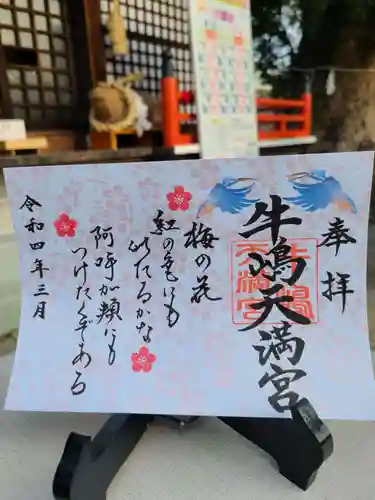 奉拝
牛嶋天満宮
梅の花
紅の色にも
似たるかな
阿呼が頬にも
つけたくぞある
令和四年三月